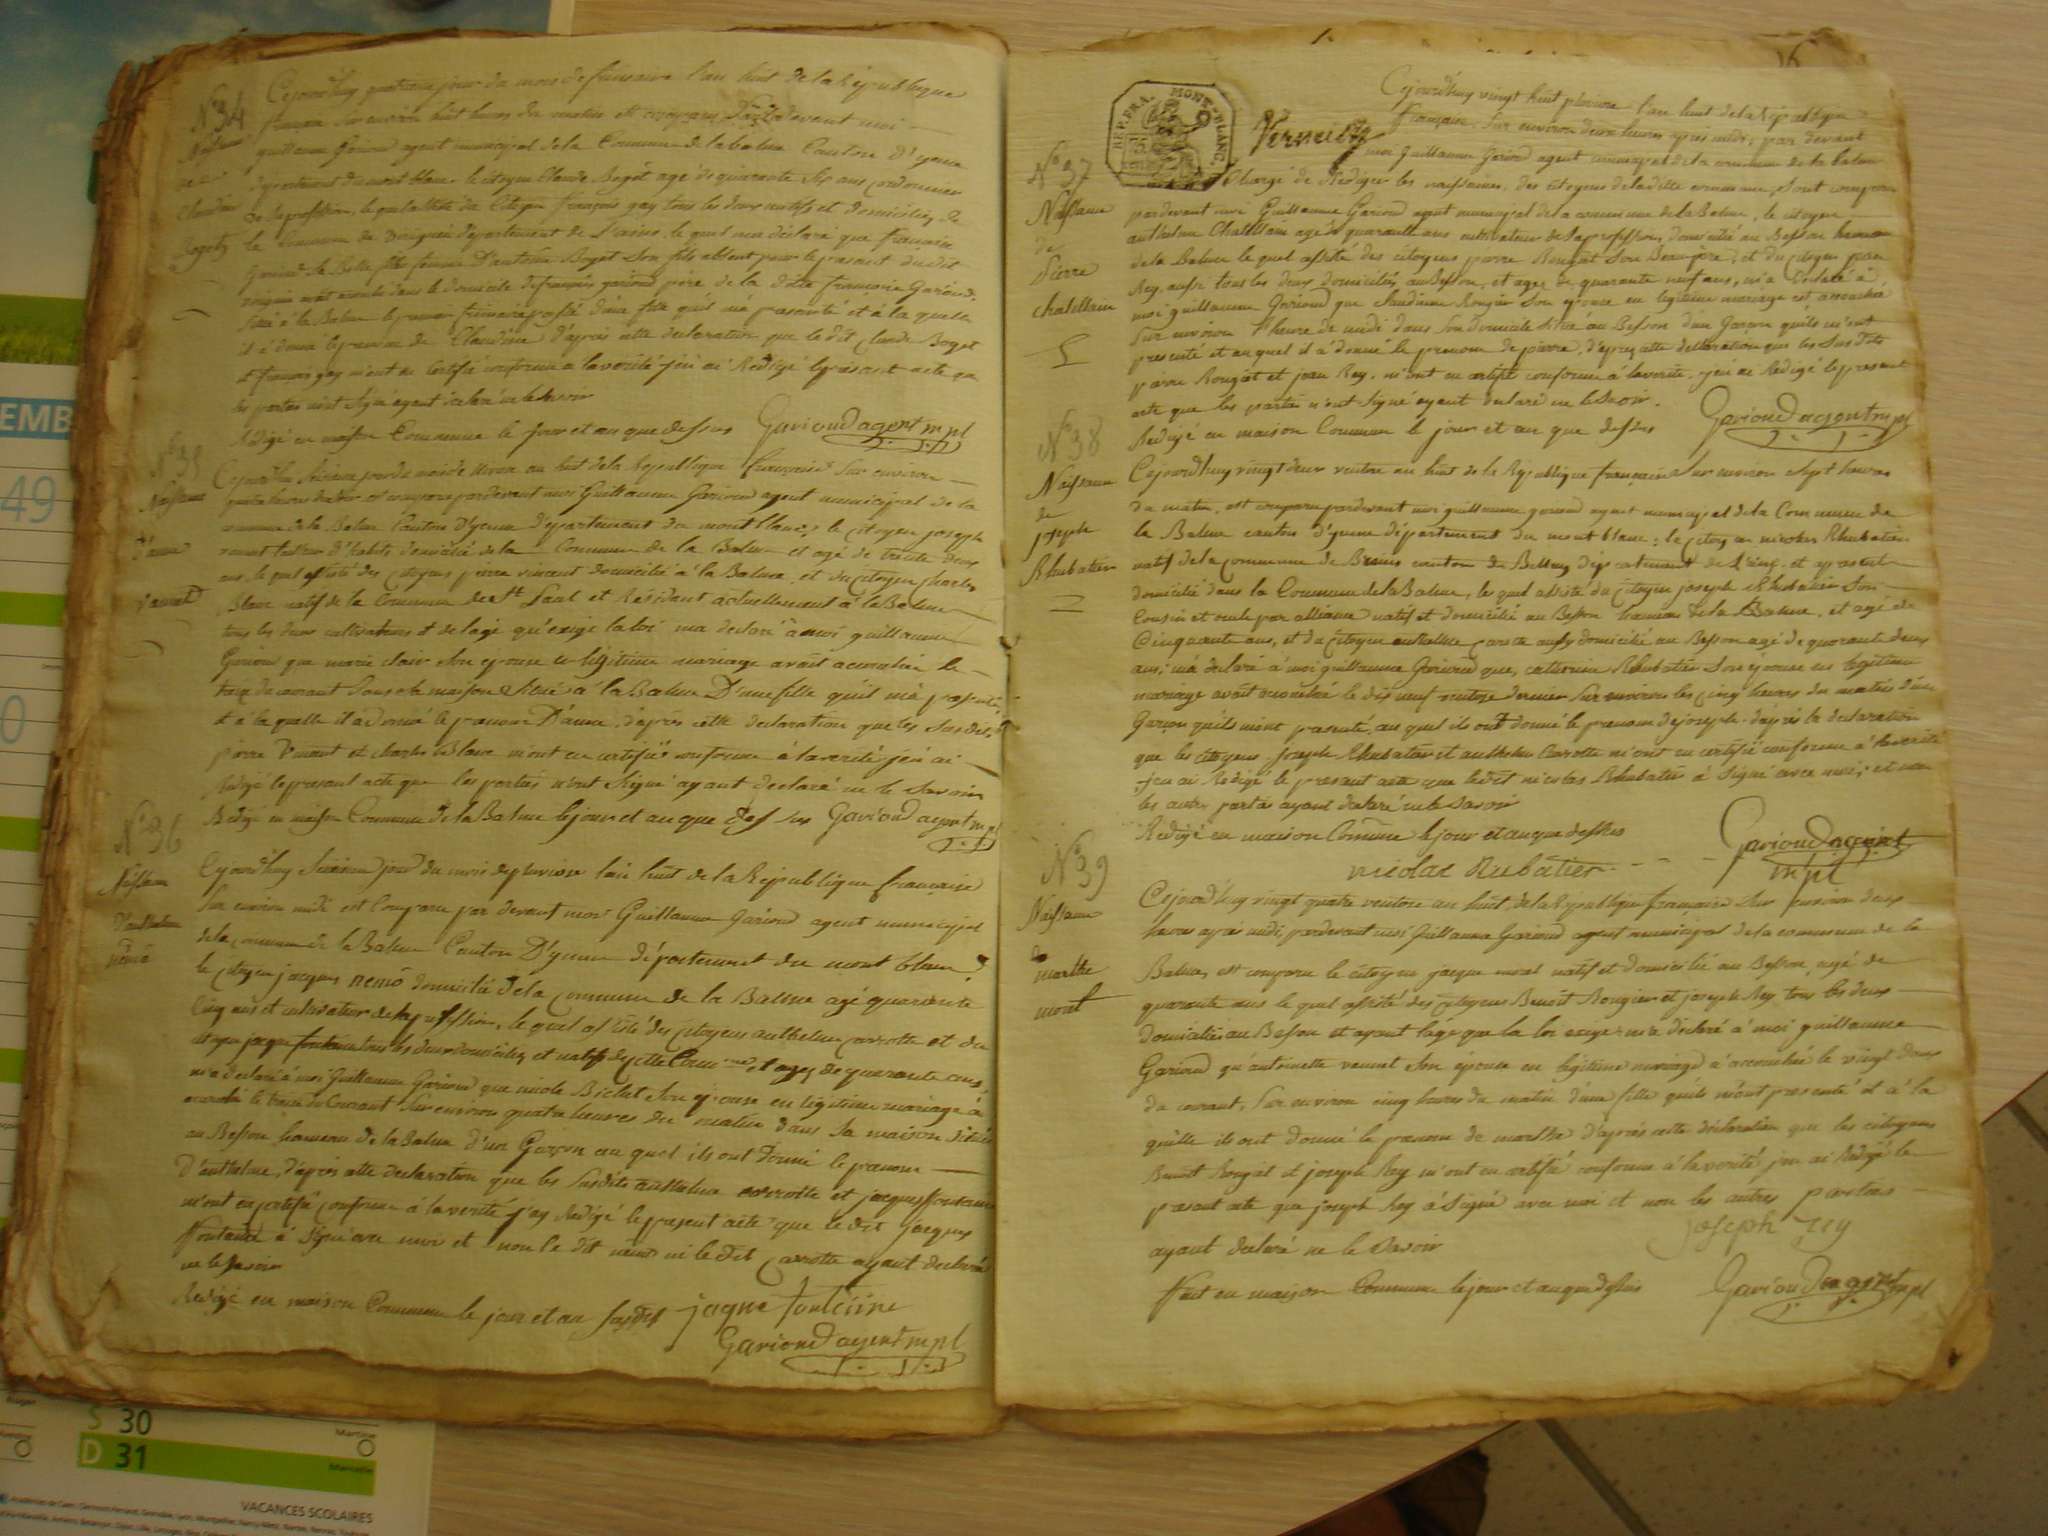 N° 34
Naissance
de
Claudine
Bogets
Cejourdhuy quatrieme jour du mois de frimaire l'an huit de la Republique
française sur environ huit heures du matin est comparu devant moi
guillaume Gariond agent municipal de la Commune de la balme Canton D'yenne
département du mont blanc, le citoyen Claude Boget agé de quarante six ans cordonnier
de sa profession, le quel assisté du Citoyen françois gay tous les deux natifs et domiciliés de
la Commune de département de l'ains, le quel m'a déclaré que françoise
Gariond sa Belle fille femme D'antoine Boget son fils absent pour le présent dudit
avoit accouché dans le domicile de françois gariond père de la dite françoise Gariond
situé à la Balme le premier frimaire d'une fille qu'il m'a présenté et à la quelle
il a donné le prenom de Claudine d'après cette declaration que le dit claude Boget
et françois gay m'ont certifié conforme a la verité j'en ai Redigé le présent acte que
les parties n'ont signé ayant déclaré ne le savoir
Redigé en maison Commune le jour et an que dessus Gariond agent mpl
N° 35
Naissance
D'anne
vaunet
Cejourdhui jour du mois de nivose an huit de la Republique française sur environ
heures est comparu pardevant moi Guillaume Gariond agent municipal de la
commune de la Balme Canton D'yenne département du mont blanc, le citoyen joseph
tailleur d'habits domicilié de la Commune de la Balme et agé de trente deux
ans, le quel assisté des Citoyens pierre vincent domicilié à la Balme et du citoyen charles
Blanc natif de la Commune de st Paul et Résidant actuellement à la Balme
tous les deux cultivateurs et de l'age qu'exige la loi m'a declaré à moi guillaume
Gariond que marie clair son épouse en légitime mariage avoit accouché le
treize du courant dans sa maison située à la Balme D'une fille qu'il m'a présenté
et à la quelle il a donné le prenom D'anne, d'après cette declaration que les susdits
pierre Vincent et charles Blanc m'ont en certifié conforme à la verité j'en ai
Redigé le present acte que les parties n'ont signé ayant declaré ne le savoir
Redigé en maison Commune de la Balme le jour et an que Dessus Gariond agent mpl
N° 36
Naissance
D'anthelme
némo
Cejourdhuy jour du mois de pluviose l'an huit de la Republique française
sur environ midi est Comparu par devant moi Guillaume Gariond agent municipal
de la commune de la Balme Canton D'yenne département du mont blanc
le citoyen jacques nemo domicilié de la Commune de la Balme agé quarante
cinq ans et cultivateur de sa profession, le quel assisté des Citoyens anthelme carrotte et du
citoyen jacque fontaine tous les deux domiciliés et natifs de cette Commune et agés de quarante ans,
m'a declaré à moi Guillaume Gariond que nicole Bichet son épouse en légitime mariage a
accouché le treize du Courant sur environ quatre heures du matin dans sa maison située
au Besson hameau de la Balme d'un Garçon au quel ils ont Donné le prenom
D'anthelme, d'après cette declaration que les susdits anthelme carrotte et jacques fontaine
m'ont en certifié conforme à la verité j'ay Redigé le present acte que le dit jacques
Fontaine à signé avec moi et non le dit némo ni le dit Carrotte ayant declaré
ne le savoir
Redigé en maison Commune le jour et an susdit jaque fontaine
Gariond agent mpl
16
REP. FRA. MONT-BLANC.
Verneilh
N° 37
Naissance
de
Pierre
chatellain
Cejourdhuy vingt huit pluviose l'an huit de la Republique
française sur environ deux heures après midi, par devant
moi Guillaume Gariond agent municipal de la commune de la balme
Chargé de Rédiger les naissances, des citoyens de la ditte commune, sont comparu
pardevant moi Guillaume Gariond agent municipal de la commune de la Balme, le citoyen
anthelme Chatellain agé de quarante ans cultivateur de sa profession, domicilié au Besson hameau
de la balme le quel assisté des citoyens pierre Rougiat son Beaupère, et du citoyen jean
Rey, aussi tous les deux domiciliés au Besson, et agés de quarante neuf ans, m'a déclaré à
moi guillaume Gariond que Claudine Rougiat son épouse en legitime mariage est accouchée
sur environ l'heure de midi dans son domicile situé au Besson d'un Garçon qu'ils m'ont
presenté et au quel il à donné le prenom de pierre, d'après cette declaration que les susdits
pierre Rougiat et jean Rey, m'ont en certifié conforme à la verité, j'en ai Redigé le present
acte que les parties n'ont signé ayant declaré ne le savoir.
Redigé en maison Commune le jour et an que dessus Gariond agent mpl
N° 38
Naissance
de
joseph
Rhubatier
Cejourdhuy vingt deux ventose an huit de la République française sur environ sept heures
du matin, est comparu pardevant moi guillaume gariond agent municipal de la Commune de
la Balme canton d'yenne département du mont blanc, le citoyen nicolas Rhubatier
natif de la commune de canton de Belley département de l'ains, et apresent
domicilié dans la Commune de la Balme, le quel assisté du citoyen joseph Rhubatier son
Cousin et oncle par alliance natif et domicilié au Besson hameau de la Balme, et agé de
Cinquante ans, et du citoyen anthelme carrotte aussy domicilié au Besson agé de quarante deux
ans, m'a declaré à moi guillaume Gariond que, catherine Rhubatier son épouse en legitime
mariage avoit accouché le dix neuf ventose dernier sur environ les cinq heures du matin d'un
Garçon qu'ils m'ont présenté, au quel ils ont donné le prenom de joseph. d'après la declaration
que les citoyens joseph Rhubatier et anthelme Carrotte m'ont en certifié conforme à la verité
j'en ai Redigé le present acte que ledit nicolas Rhubatier à signé avec moi, et non
les autres parties ayant declaré ne le savoir
Redigé en maison Commune le jour et an que dessus
nicolas Rubatier Gariond agent
mpl
N° 39
Naissance
de
marthe
moral
Cejourd'huy vingt quatre ventose an huit, de la Republique française sur environ deux
heures après midi, pardevant moi Guillaume Gariond agent municipal de la commune de la
Balme, est comparu le citoyen jacque moral natif et domicilié au Besson, agé de
quarante ans le quel assisté des citoyens Benoit Rougiat et joseph Rey tous les deux
domiciliés au Besson et ayant l'age que la loi exige, m'a déclaré à moi guillaume
Gariond qu'antoinette vaunet son épouse en legitime mariage à accouché le vingt deux
du courant, sur environ cinq heures du matin d'une fille qu'ils m'ont presenté et à la
quelle ils ont donné le prenom de marthe d'après cette déclaration que les citoyens
Benoit Rougiat et joseph Rey m'ont en certifié conforme à la verité j'en ai Redigé le
present acte que joseph Rey à signé avec moi et non les autres parties
ayant declaré ne le savoir joseph rey
Fait en maison Commune le jour et an que dessus Gariond agent mpl
EMB
49
0
S 30
Martine
D 31
Marcelle
VACANCES SCOLAIRES